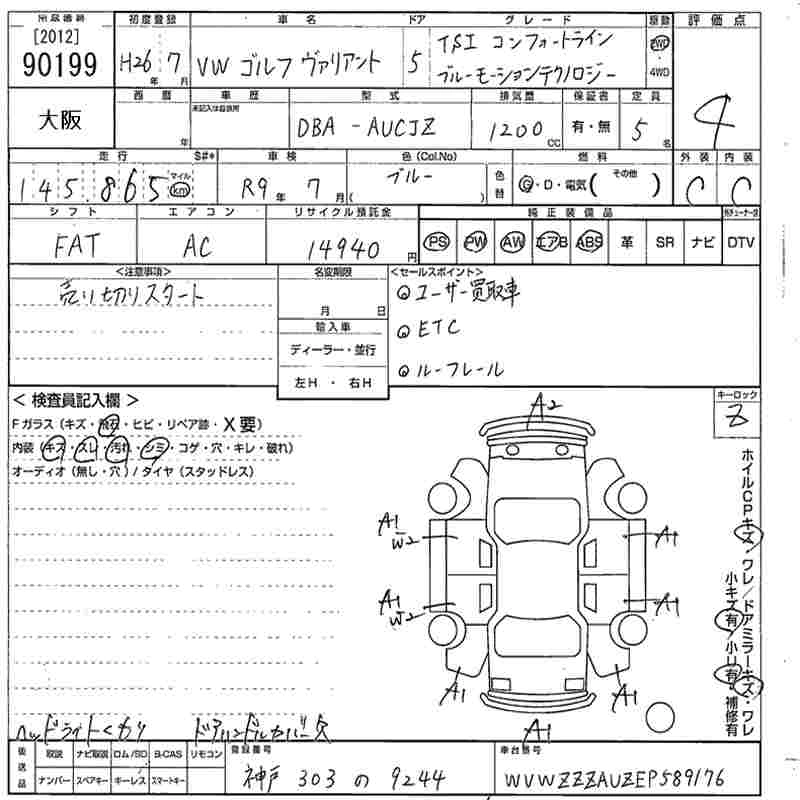 [2012]
90199
大阪
初度登録 車名 ドア グレード 駆動 評価点
H26年 7月 VW ゴルフ ヴァリアント 5 TSI コンフォートライン 2WD
ブルーモーションテクノロジー 4WD
4
西暦 車歴 型式 排気量 保証書 定員
未記入は自家用
年 DBA - AUCJZ 1200cc 有・無 5名
走行 S#* 車検 色(Col.No) 燃料 外装 内装
145,865 マイル km R9年 7月 ブルー ( ) 色替 G・D・電気( その他 ) C C
シフト エアコン リサイクル預託金 純正装備品
FAT AC 14940円 PS PW AW エアB ABS 革 SR ナビ DTV
<注意事項> 名変期限 <セールスポイント>
売り切りスタート
月 日
◎ユーザー買取車
輸入車
◎ETC
ディーラー・並行
左H ・ 右H
◎ルーフレール
< 検査員記入欄 >
Fガラス(キズ・飛石・ヒビ・リペア跡・X要)
内装(キズ・スレ・汚れ・シミ・コゲ・穴・キレ・破れ)
オーディオ(無し・穴)/タイヤ(スタッドレス)
キーロック
Z
A2
A1
W2
A1
A1
W2
A1
A1
A1
A1
ホイルCPキズ・ワレ/ドアミラーキズ・ワレ
小キズ有/小U有・補修有
ヘッドライトくもり ドアハンドルカバー欠
後送品 取説 ナビ取説 ロム/SD B-CAS リモコン
ナンバー スペアキー キーレス スマートキー
登録番号
神戸 303 の 9244
車台番号
WVWZZZAUZEP589176